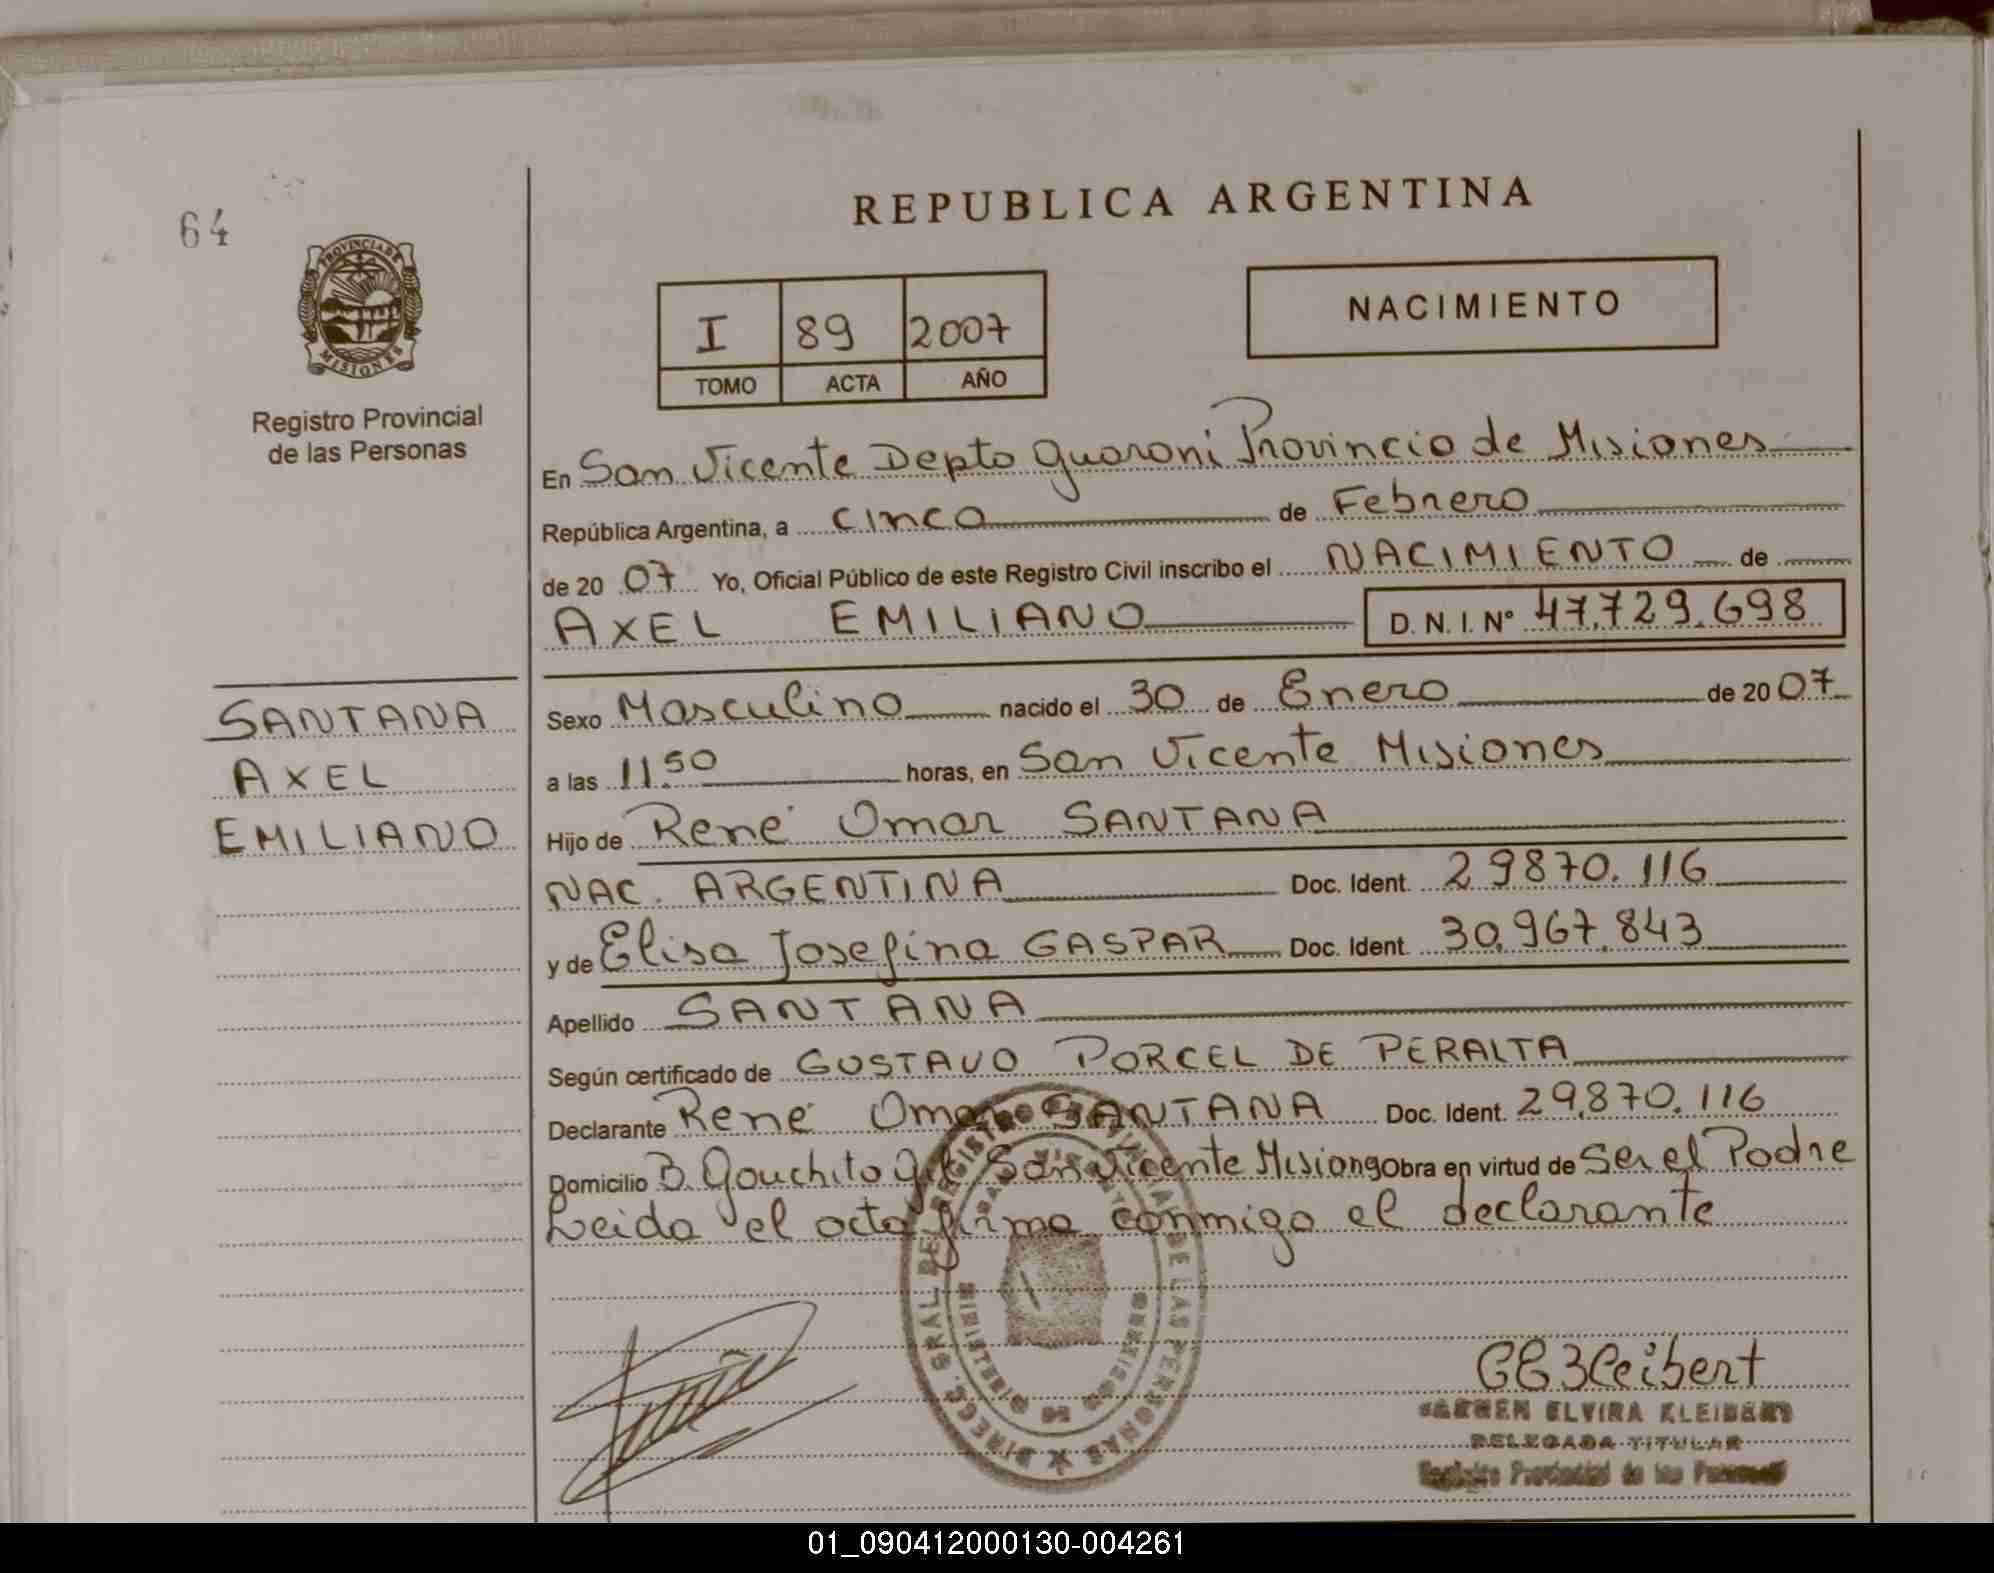 64
PROVINCIA DE
MISIONES
Registro Provincial
de las Personas
REPUBLICA ARGENTINA
I 89 2007
TOMO ACTA AÑO
NACIMIENTO
En San Vicente Depto Guaraní Provincia de Misiones
República Argentina, a cinco de Febrero
de 20 07 Yo, Oficial Público de este Registro Civil inscribo el NACIMIENTO de
AXEL EMILIANO D.N.I. Nº 47.729.698
SANTANA
AXEL
EMILIANO
Sexo Masculino nacido el 30 de Enero de 20 07
a las 11.50 horas, en San Vicente Misiones
Hijo de René Omar SANTANA
NAC. ARGENTINA Doc. Ident. 29870.116
y de Elisa Josefina GASPAR Doc. Ident. 30.967.843
Apellido SANTANA
Según certificado de GUSTAVO PORCEL DE PERALTA
Declarante René Omar SANTANA Doc. Ident. 29.870.116
Domicilio B. Gauchito Gil San Vicente Misiones Obra en virtud de Ser el Padre
Leida el acta firma conmigo el declarante
DIRECC. GRAL. DEL REGISTRO DE LAS PERSONAS
CARMEN ELVIRA KLEIBERT
DELEGADA TITULAR
Registro Provincial de las Personas
01_090412000130-004261